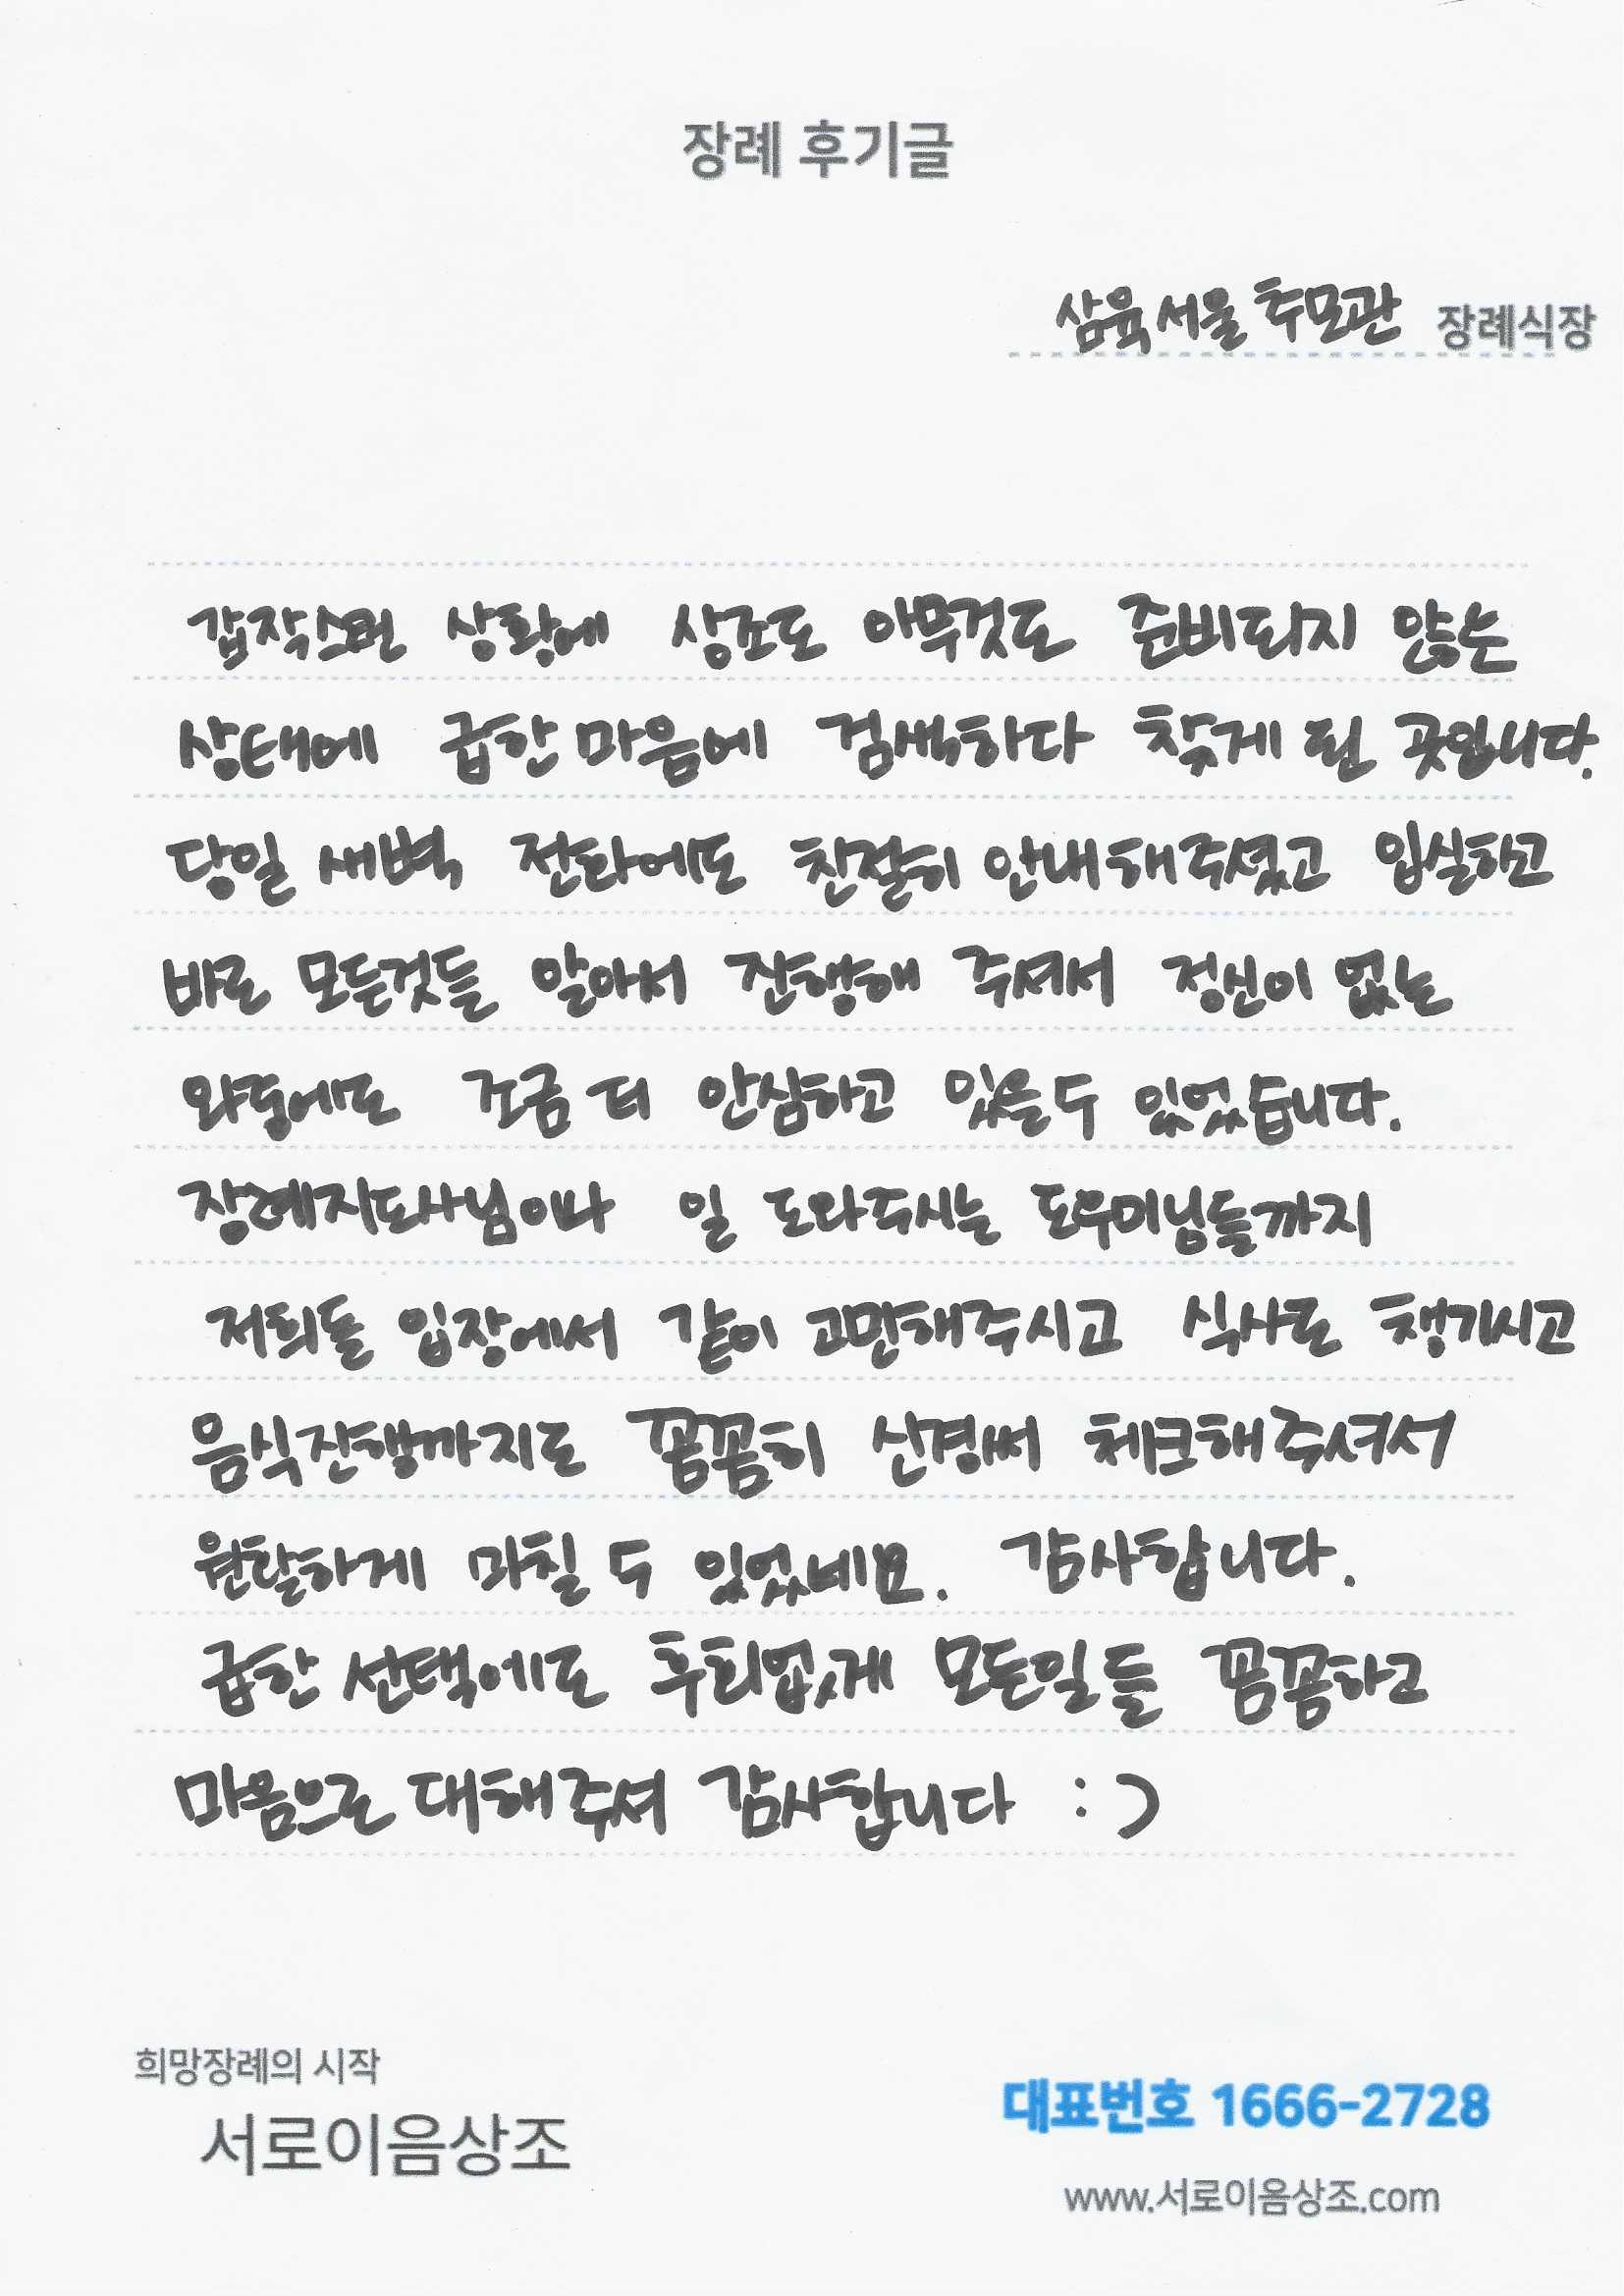 장례 후기글
삼육서울추모관 장례식장
갑작스런 상황에 상조도 아무것도 준비되지 않는
상태에 급한 마음에 검색하다 찾게 된 곳입니다.
당일 새벽 전화에도 친절히 안내해주셨고 입실하고
바로 모든것들 알아서 진행해 주셔서 정신이 없는
와중에도 조금 더 안심하고 있을 수 있었습니다.
장례지도사님이나 일 도와주시는 도우미님들까지
저희들 입장에서 같이 고민해주시고 식사도 챙기시고
음식진행까지도 꼼꼼히 신경써 체크해주셔서
원활하게 마칠 수 있었네요. 감사합니다.
급한 선택에도 후회없게 모든일들 꼼꼼하고
마음으로 대해주셔 감사합니다 :)
희망장례의 시작
서로이음상조
대표번호 1666-2728
www.서로이음상조.com